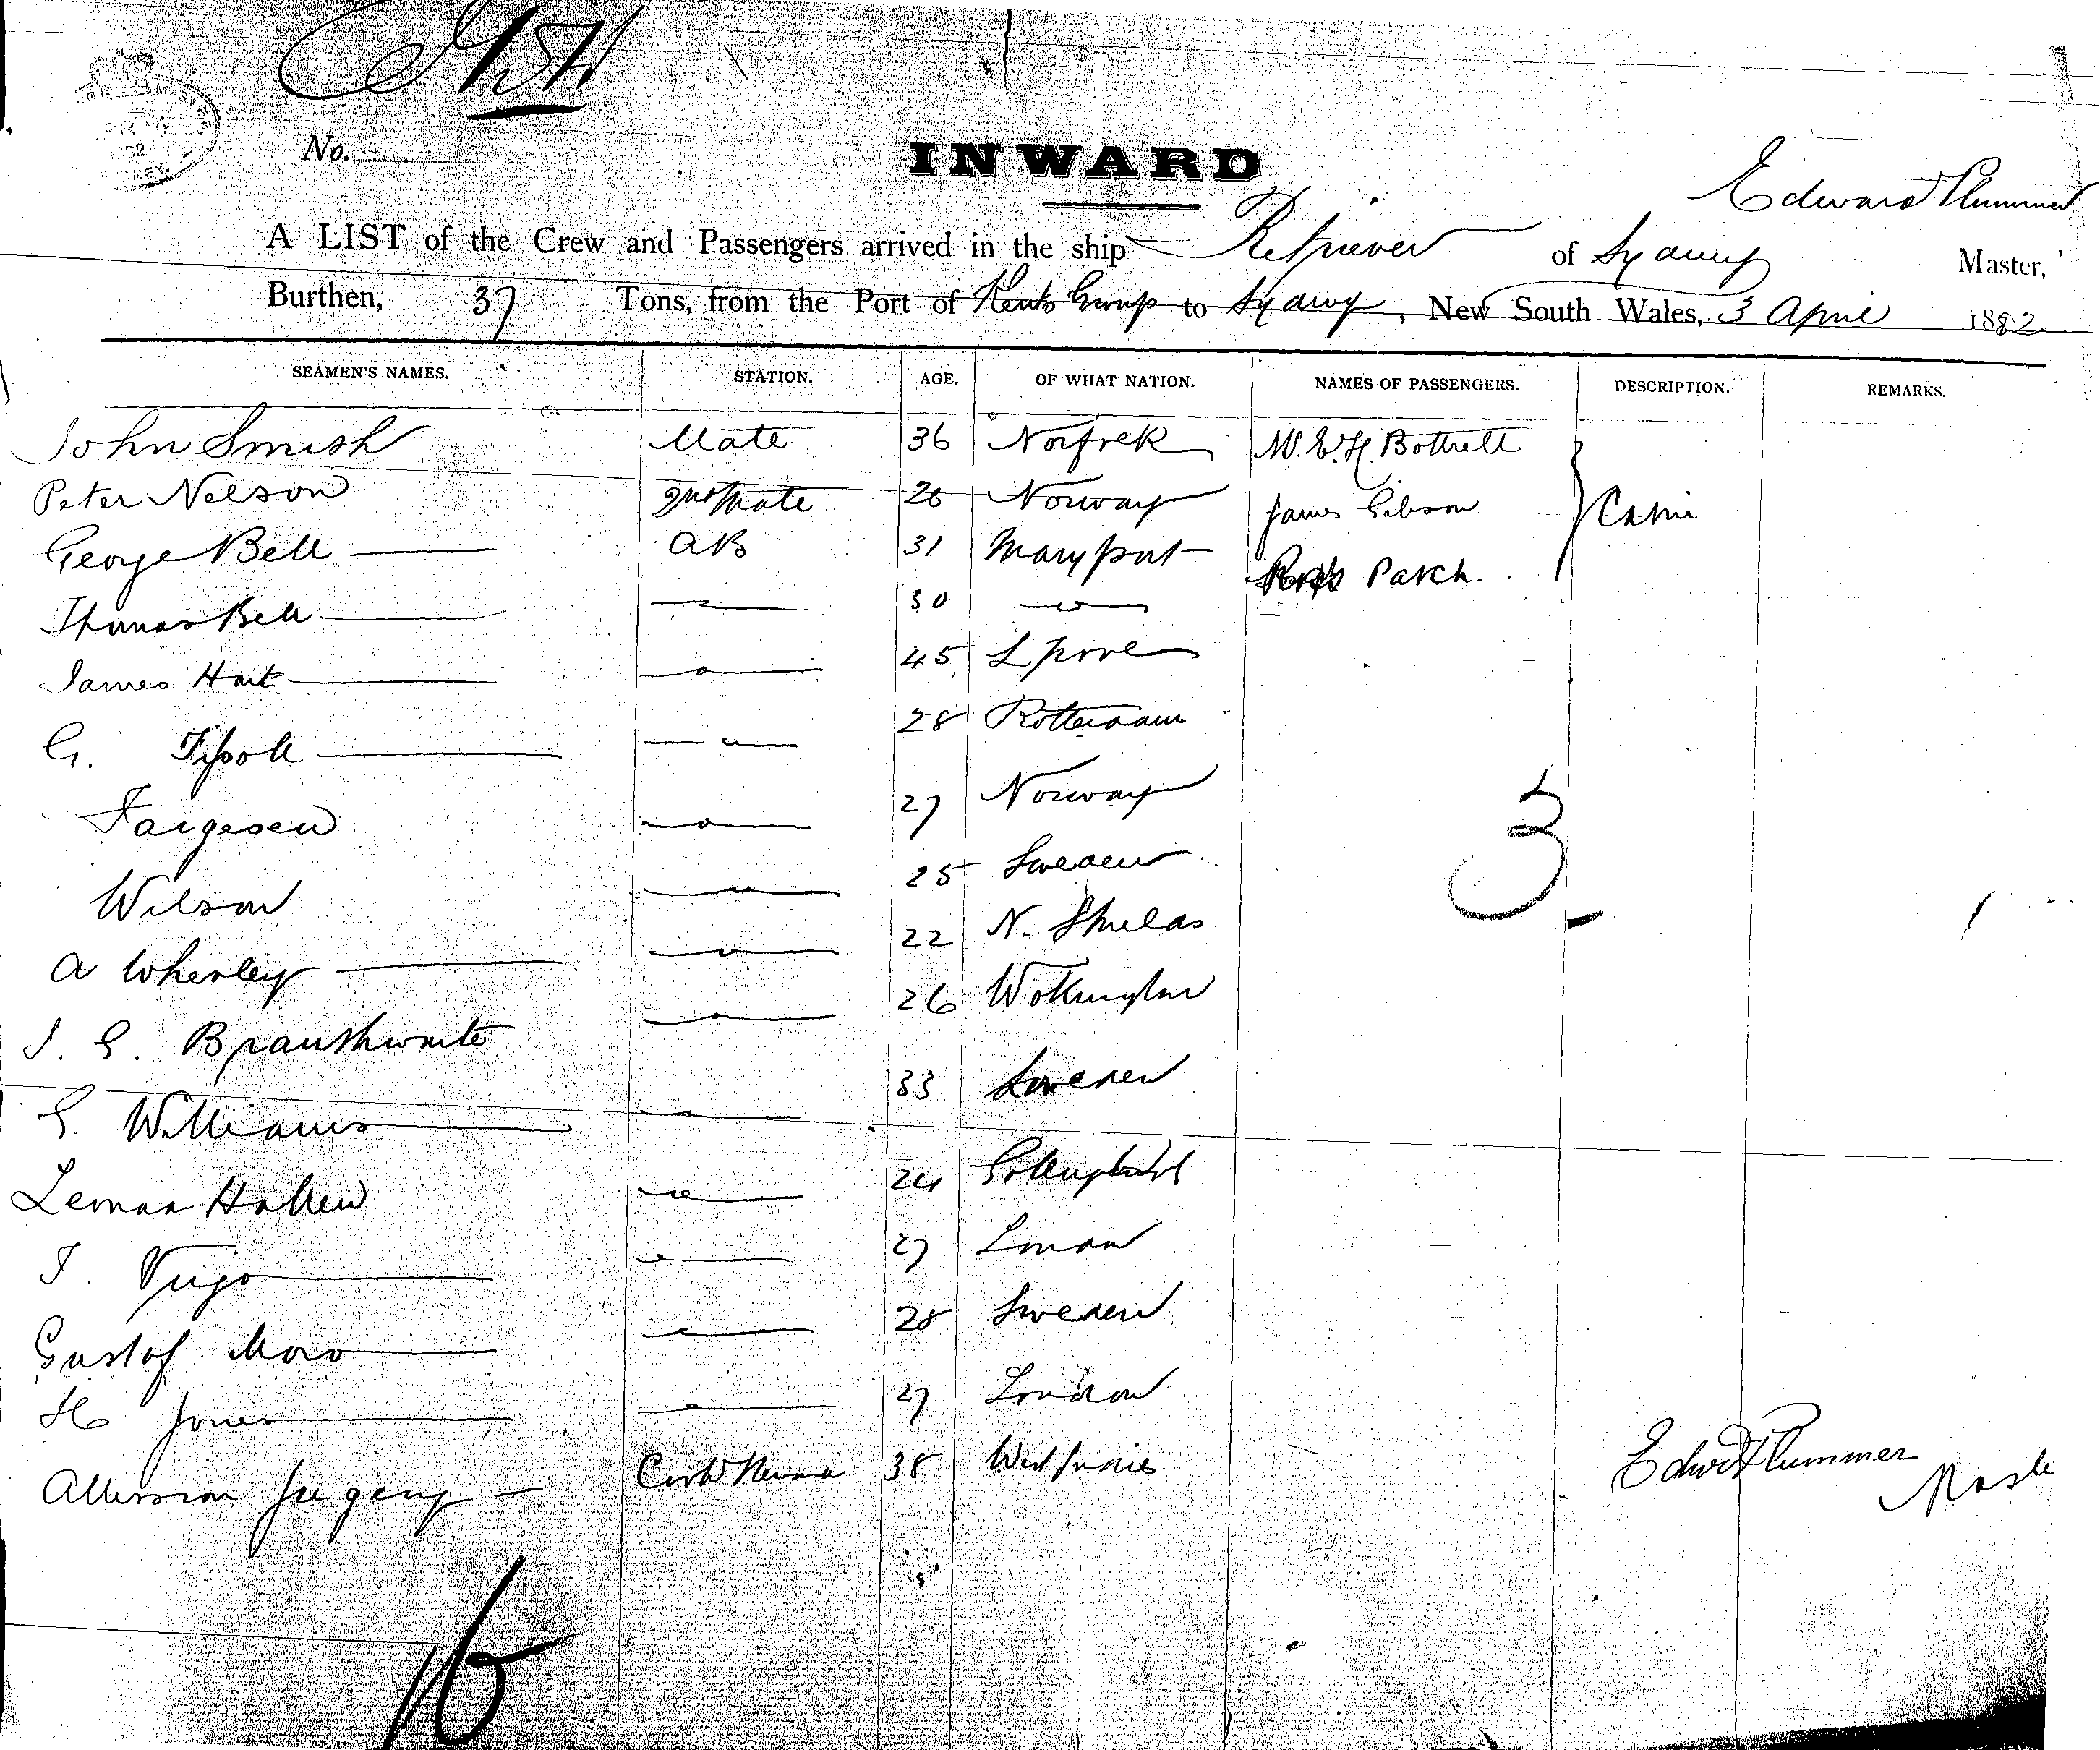 No.
INWARD
Edward Plummer
A LIST of the Crew and Passengers arrived in the ship Retriever of Sydney Master,
Burthen, 37 Tons, from the Port of Kents Group to Sydney, New South Wales, 3 April 1882
SEAMEN'S NAMES. STATION. AGE. OF WHAT NATION. NAMES OF PASSENGERS. DESCRIPTION. REMARKS.
John Smith Mate 36 Norfolk W. E. H. Bottrell
Peter Nelson 2nd Mate 26 Norway James Gibson Cabin
George Bell AB 31 Maryport Parch.
Thomas Bell 30
James Hart 45 Lpool
G. 28 Rotterdam
Fargesen 27 Norway
Wilson 25 Sweden
A Wherley 22 N. Shields
J. G. Braithwaite 26 Workington
G. Williams 33 Sweden
Hallen 24
J. Vugo 27 London
Gustof Moro 28 Sweden
H Jones 27 London
38 West Indies
3
Edwd Plummer
Master
16